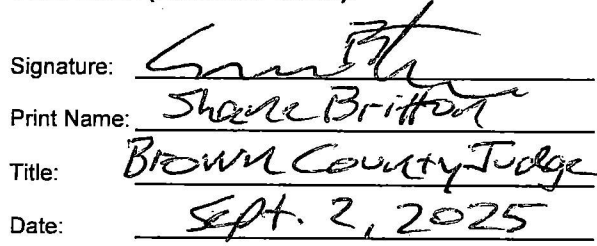 Signature:
Print Name: Shane Britton
Title: Brown County Judge
Date: Sept. 2, 2025